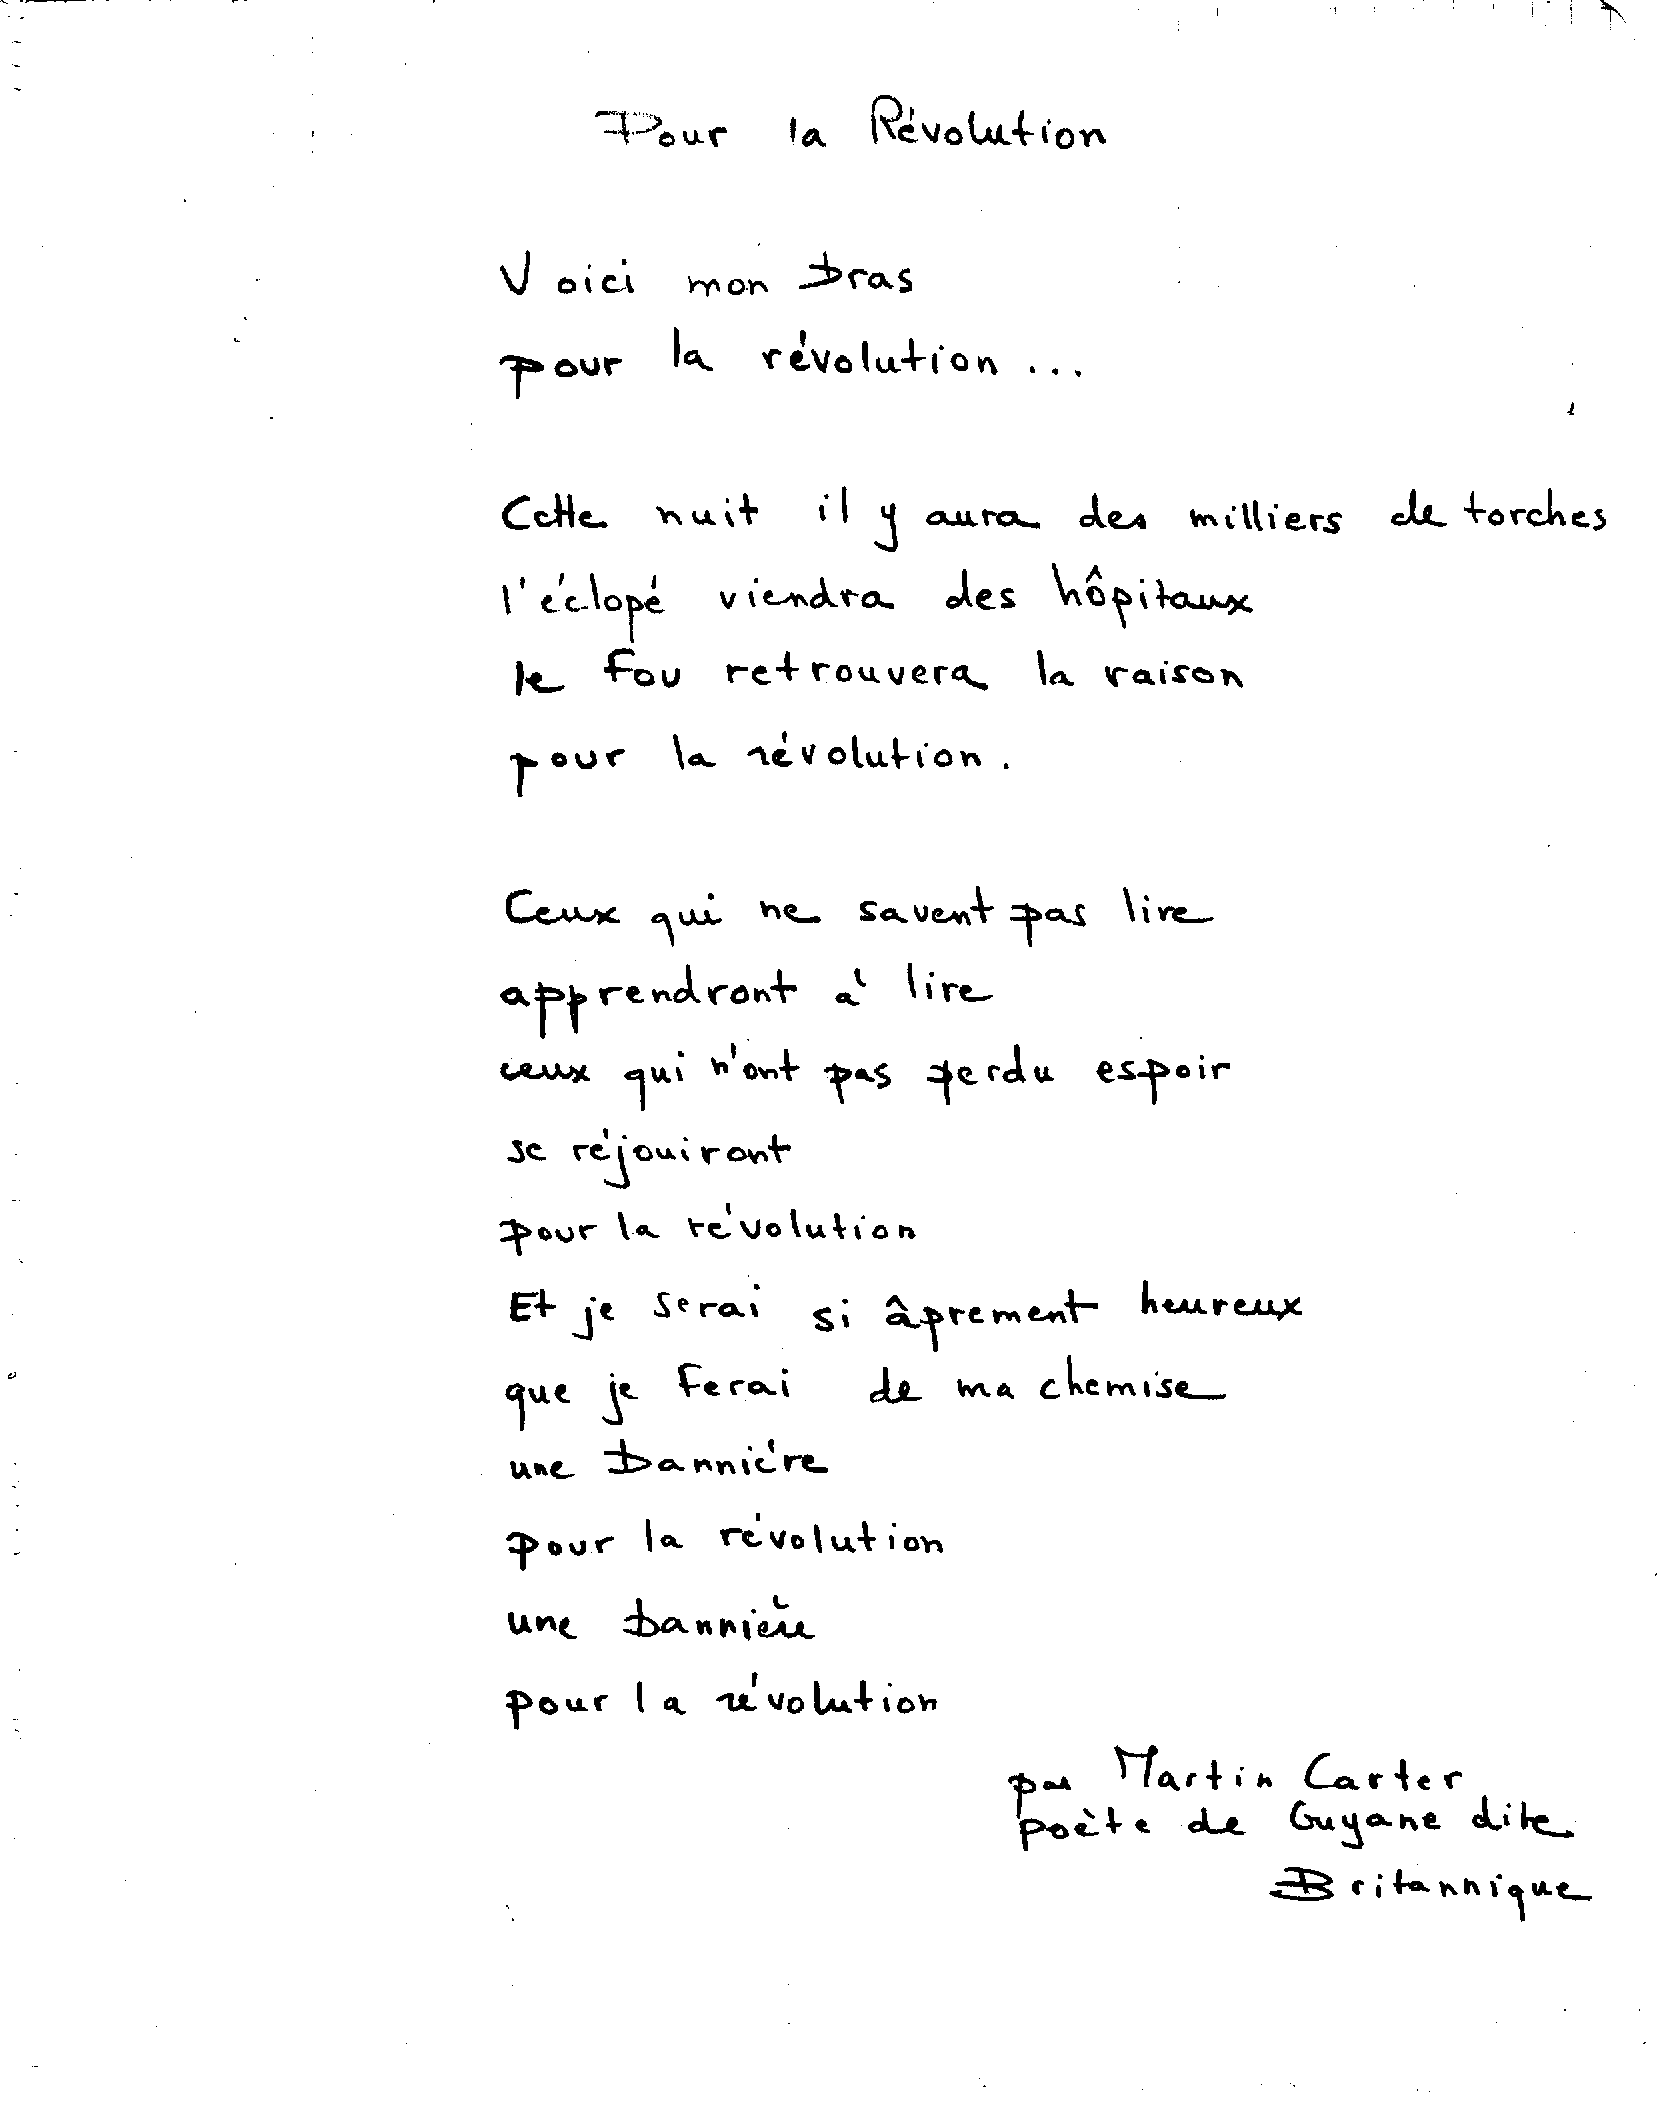 Pour la Révolution
Voici mon bras
pour la révolution...
Cette nuit il y aura des milliers de torches
l'éclopé viendra des hôpitaux
le fou retrouvera la raison
pour la révolution.
Ceux qui ne savent pas lire
apprendront à lire
ceux qui n'ont pas perdu espoir
se réjouiront
pour la révolution
Et je serai si âprement heureux
que je ferai de ma chemise
une bannière
pour la révolution
une bannière
pour la révolution
par Martin Carter
poète de Guyane dite
Britannique